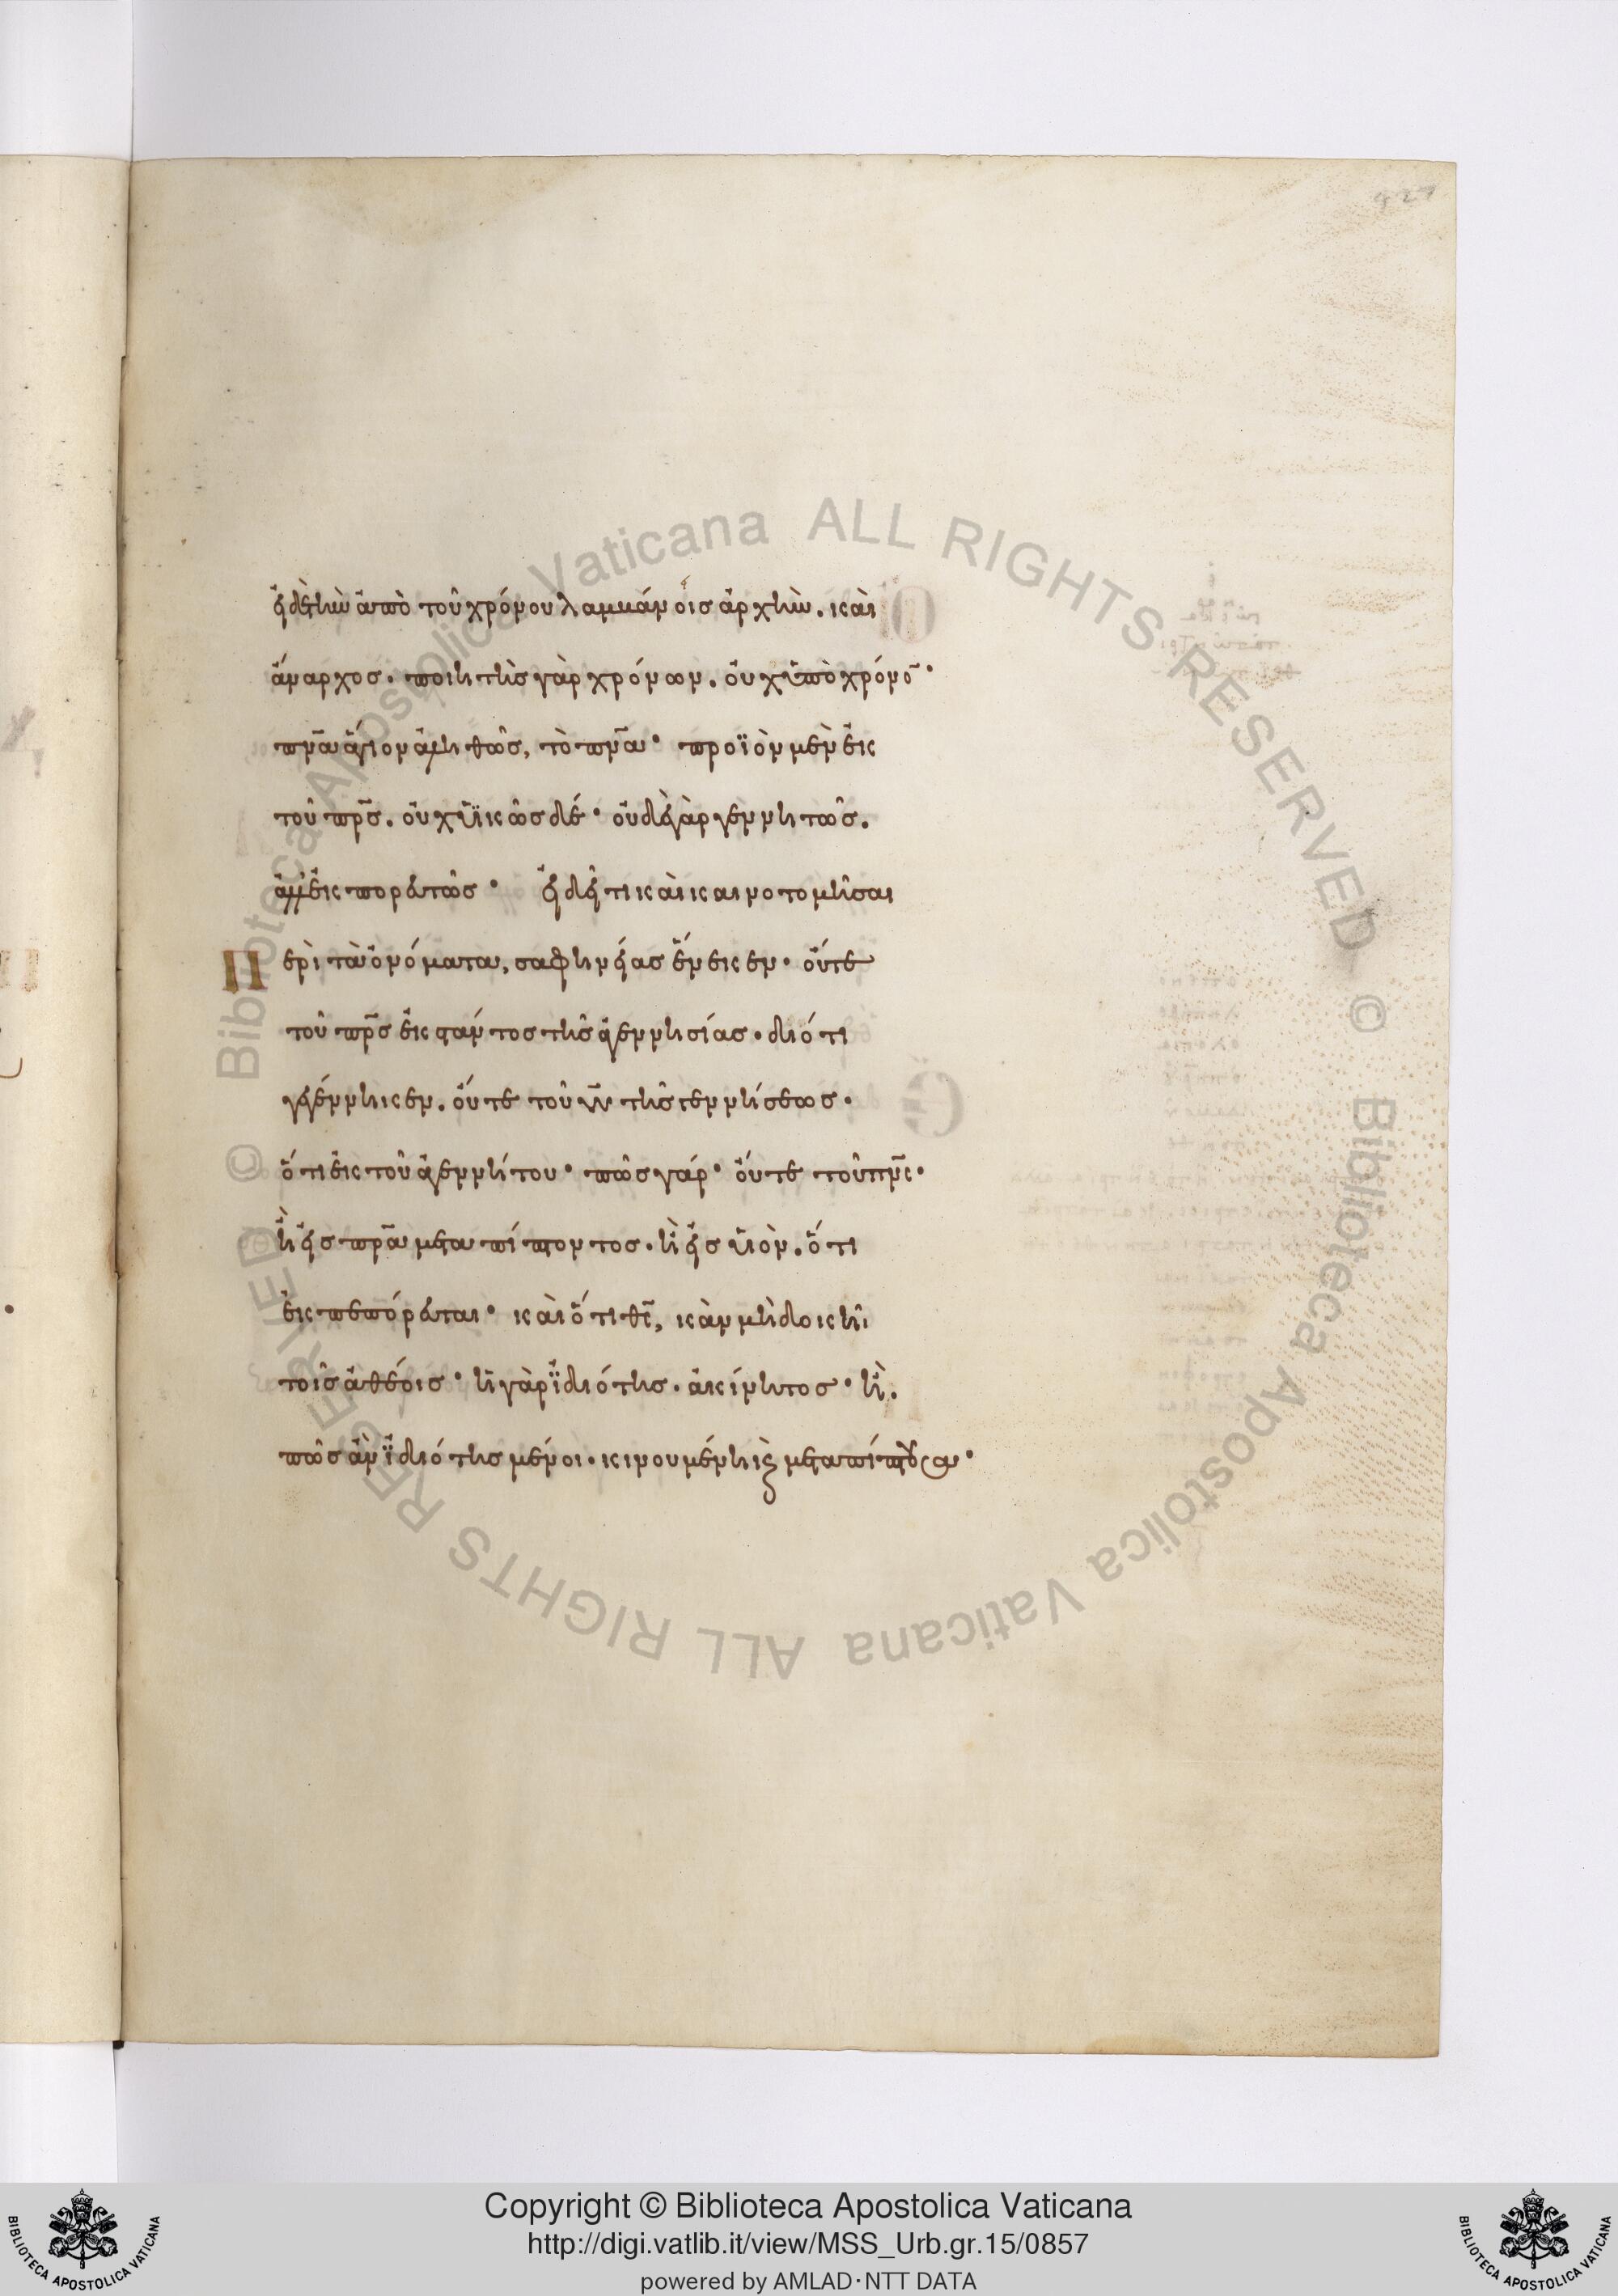 427
εἰ δὲ τὴν ἀπὸ τοῦ χρόνου λαμβάνοις ἀρχὴν. καὶ
ἄναρχος. ποιητὴς γὰρ χρόνων. οὐχ ὑπὸ χρόνον·
πνᾶ ἅγιον ἀληθῶς, τὸ πνᾶ· προϊὸν μὲν ἐκ
τοῦ πρς. οὐχ ὑϊκῶς δέ· οὐδὲ γὰρ γεννητῶς.
ἀλλ' ἐκπορευτῶς· εἰ δεῖ τι καὶ καινοτομῆσαι
περὶ τὰ ὀνόματα, σαφηνείας ἕνεκεν· οὔτε
τοῦ πρς ἐκστάντος τῆς ἀγεννησίας. διότι
γεγέννηκεν. οὔτε τοῦ υυ τῆς γεννήσεως.
ὅτι ἐκ τοῦ ἀγεννήτου· πῶς γάρ· οὔτε τοῦ πνς.
ἢ εἰς πρα μεταπίπτοντος. ἢ εἰς υἱὸν. ὅτι
ἐκπεπόρευται· καὶ ὅτι θς, κὰν μὴ δοκῆ
τοῖς ἀθέοις· ἡ γὰρ ἰδιότης. ἀκίνητος· ἢ.
πῶς ἂν ἰδιότης μένοι. κινουμένη καὶ μεταπίπτουσα·
Copyright © Biblioteca Apostolica Vaticana
http://digi.vatlib.it/view/MSS_Urb.gr.15/0857
powered by AMLAD·NTT DATA
BIBLIOTECA APOSTOLICA VATICANA
BIBLIOTECA APOSTOLICA VATICANA
© Biblioteca Apostolica Vaticana ALL RIGHTS RESERVED
© Biblioteca Apostolica Vaticana ALL RIGHTS RESERVED